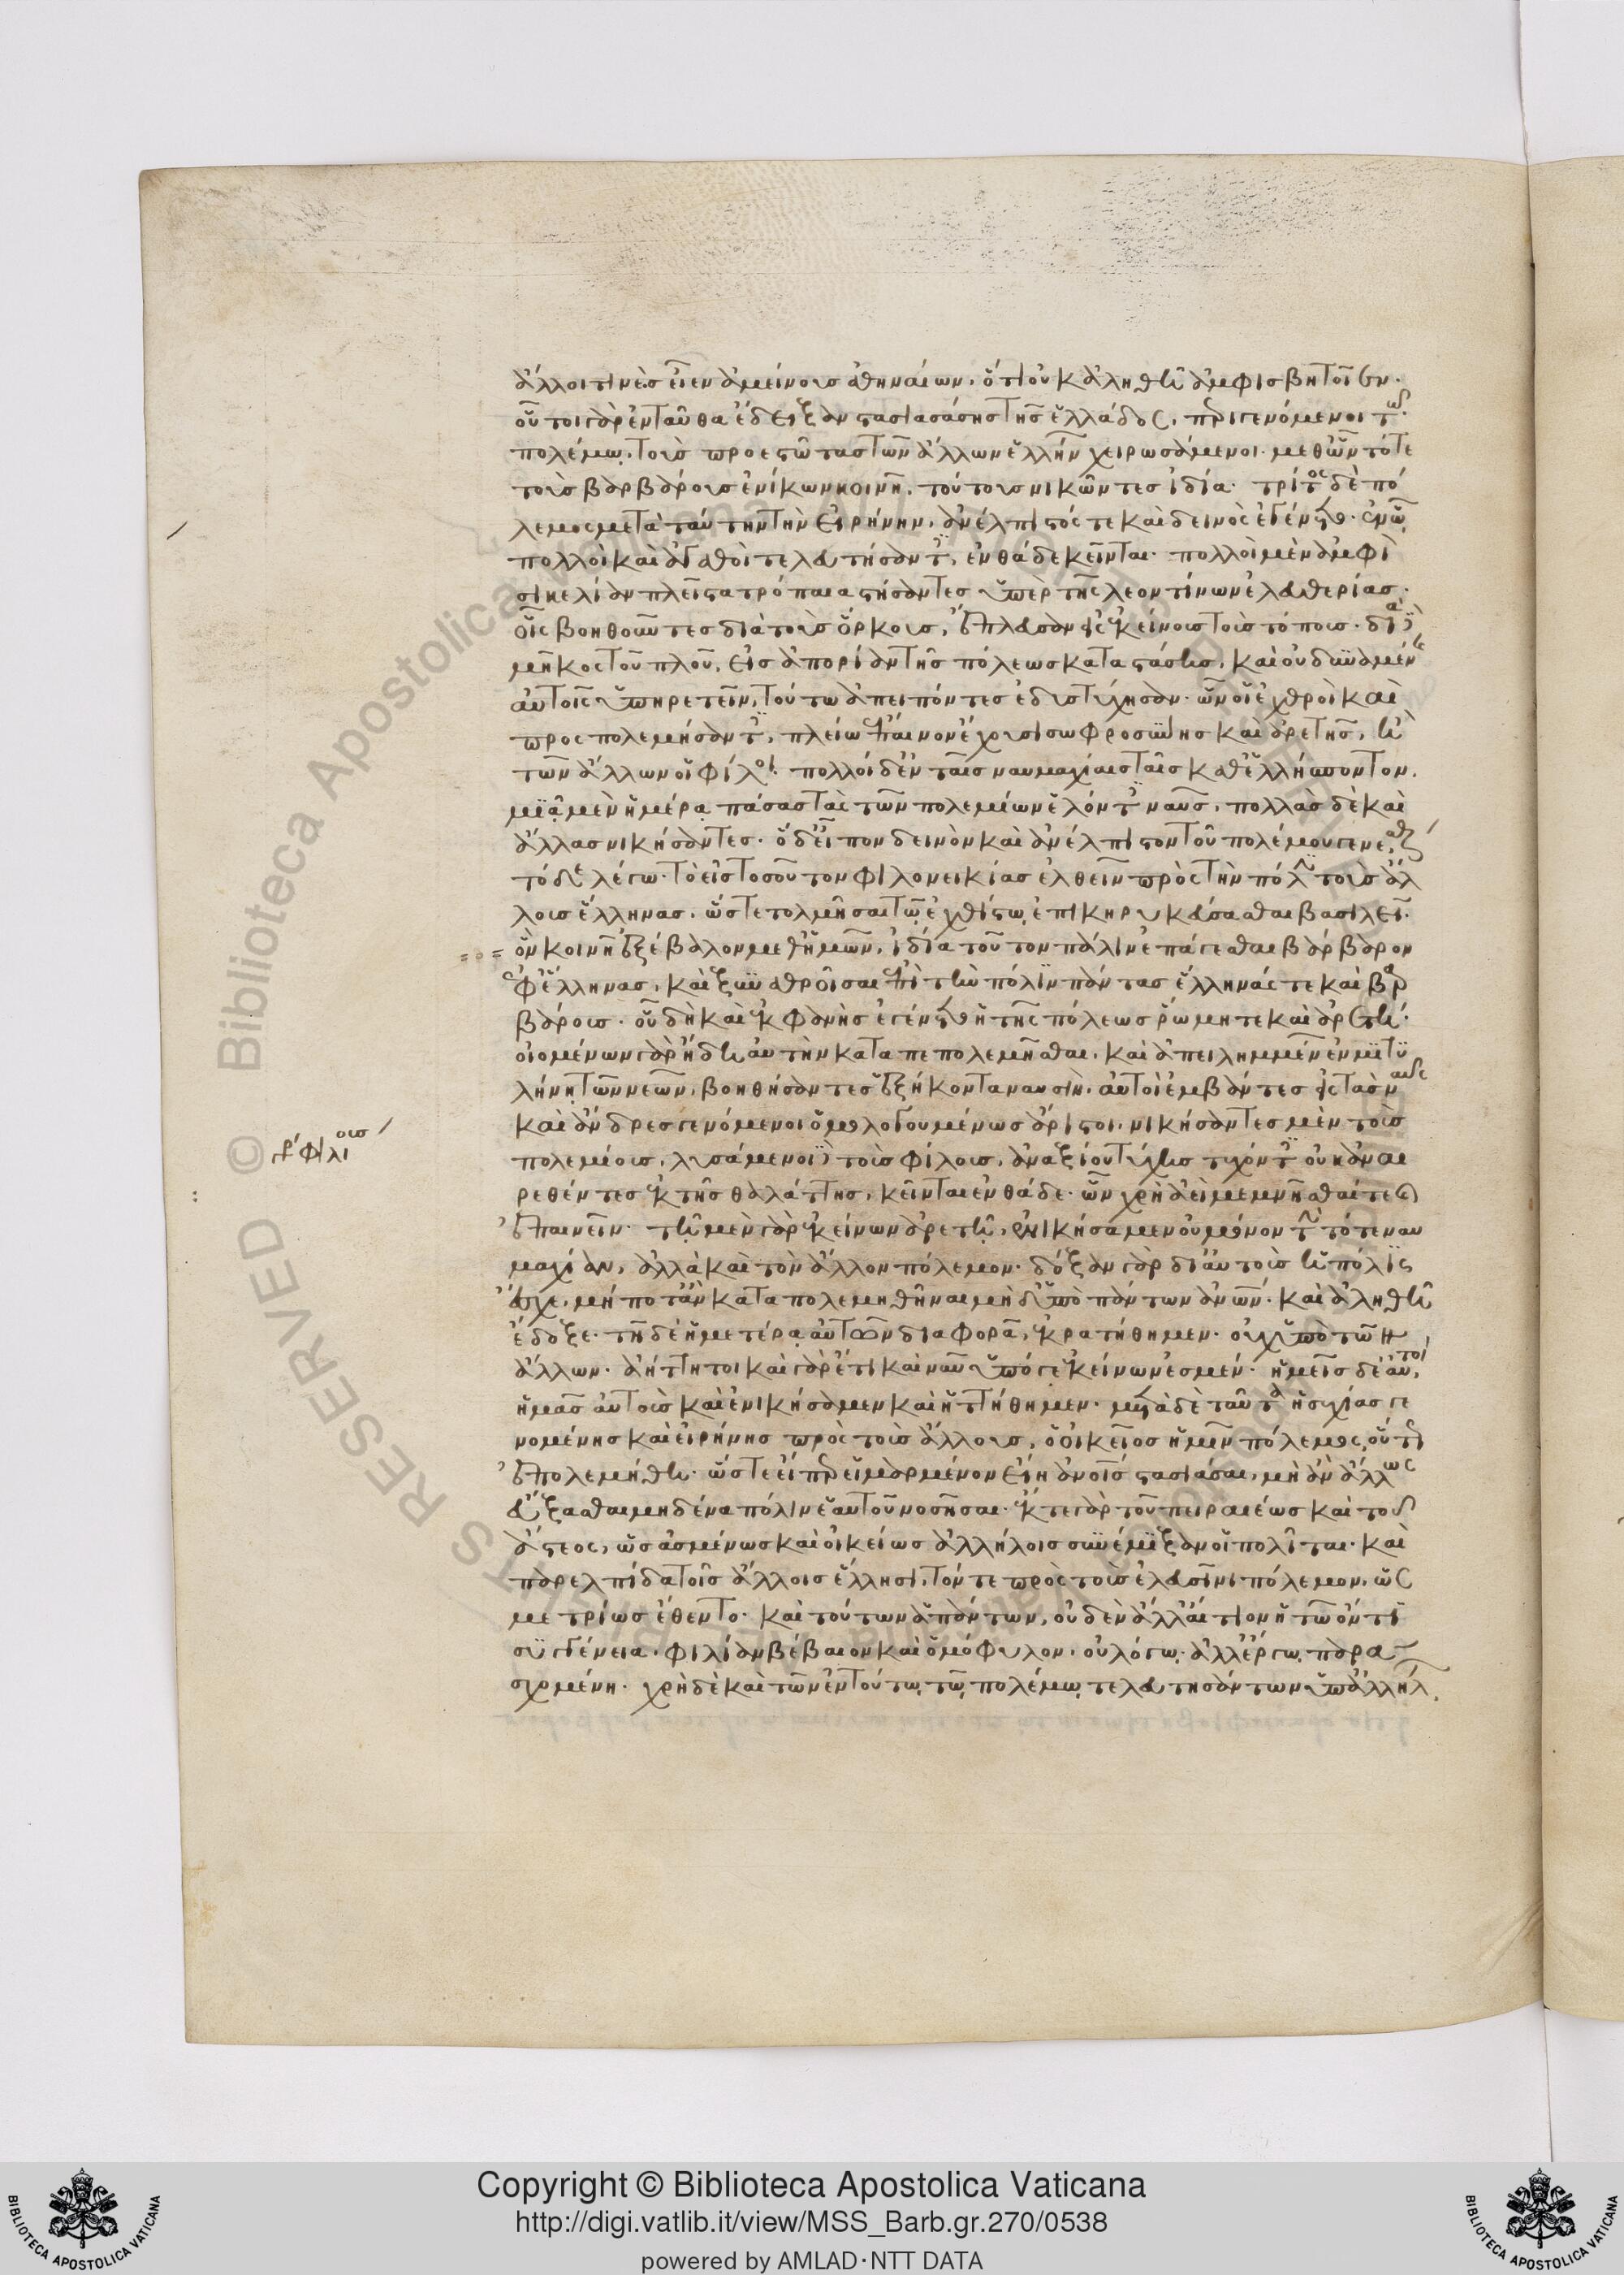 ἄλλοι τινὲς εἶεν ἀμείνους ἀθηναίων. ὅτι οὐκ ἀληθῆ ἀμφισβητοῖεν.
οὗτοι γὰρ ἐνταῦθα ἔδειξαν στασιασάσης τῆς ἑλλάδος, περιγενόμενοι τῷ
πολέμῳ. τοὺς προεστῶτας τῶν ἄλλων ἑλλήνων χειρωσάμενοι. μεθ᾽ ὧν τότε
τοὺς βαρβάρους ἐνίκων κοινῇ, τούτους νικῶντες ἰδίᾳ. τρίτος δὲ πό
λεμος μετὰ ταύτην τὴν εἰρήνην, ἀνέλπιστός τε καὶ δεινὸς ἐγένετο. ἐν ᾧ
πολλοὶ καὶ ἀγαθοὶ τελευτήσαντες, ἐνθάδε κεῖνται. πολλοὶ μὲν ἀμφὶ
σικελίαν πλεῖστα τρόπαια στήσαντες ὑπὲρ τῆς λεοντίνων ἐλευθερίας.
οἷς βοηθοῦντες διὰ τοὺς ὅρκους, ἔπλευσαν εἰς ἐκείνους τοὺς τόπους. διὰ δὲ
μῆκος τοῦ πλοῦ, εἰς ἀπορίαν τῆς πόλεως καταστάσης, καὶ οὐ δυναμένης
αὐτοῖς ὑπηρετεῖν, τούτῳ ἀπειπόντες ἐδυστύχησαν. ὧν οἱ ἐχθροὶ καὶ
προσπολεμήσαντες, πλείω ἔπαινον ἔχουσι σωφροσύνης καὶ ἀρετῆς, ἢ
τῶν ἄλλων οἱ φίλοι. πολλοὶ δ᾽ ἐν ταῖς ναυμαχίαις ταῖς καθ᾽ ἑλλήσποντον.
μιᾷ μὲν ἡμέρᾳ πάσας τὰς τῶν πολεμίων ἑλόντες ναῦς, πολλὰς δὲ καὶ
ἄλλας νικήσαντες. ὃ δ᾽ εἶπον δεινὸν καὶ ἀνέλπιστον τοῦ πολέμου γενέσθαι
τόδε λέγω. τὸ εἰς τοσοῦτον φιλονεικίας ἐλθεῖν πρὸς τὴν πόλιν τοὺς ἄλ
λους ἕλληνας, ὥστε τολμῆσαι τῷ ἐχθίστῳ ἐπικηρυκεύσασθαι βασιλεῖ.
ὃν κοινῇ ἐξέβαλον μεθ᾽ ἡμῶν, ἰδίᾳ τοῦτον πάλιν ἐπάγεσθαι βάρβαρον
ἐφ᾽ ἕλληνας, καὶ ξυναθροῖσαι ἐπὶ τὴν πόλιν πάντας ἕλληνάς τε καὶ βαρ
βάρους. οὗ δὴ καὶ ἐκφανὴς ἐγένετο ἡ τῆς πόλεως ῥώμη τε καὶ ἀρετή.
οἰομένων γὰρ ἤδη αὐτὴν καταπεπολεμῆσθαι, καὶ ἀπειλημμένων ἐν μιτυ
λήνῃ τῶν νεῶν, βοηθήσαντες ἑξήκοντα ναυσὶν, αὐτοὶ ἐμβάντες εἰς τὰς ναῦς
καὶ ἄνδρες γενόμενοι ὁμολογουμένως ἄριστοι, νικήσαντες μὲν τοὺς
πολεμίους, λυσάμενοι δὲ τοὺς φίλους, ἀναξίου τύχης τυχόντες οὐκ ἀναι
ρεθέντες ἐκ τῆς θαλάττης, κεῖνται ἐνθάδε. ὧν χρὴ ἀεὶ μεμνῆσθαί τε καὶ
ἐπαινεῖν. τῇ μὲν γὰρ ἐκείνων ἀρετῇ, ἐνικήσαμεν οὐ μόνον τὴν τότε ναυ
μαχίαν, ἀλλὰ καὶ τὸν ἄλλον πόλεμον. δόξαν γὰρ δι᾽ αὐτοὺς ἡ πόλις
ἔσχε, μή ποτ᾽ ἂν καταπολεμηθῆναι μηδ᾽ ὑπὸ πάντων ἀνθρώπων. καὶ ἀληθῆ
ἔδοξε. τῇ δὲ ἡμετέρᾳ αὐτῶν διαφορᾷ, ἐκρατήθημεν. οὐχ ὑπὸ τῶν
ἄλλων. ἀήττητοι καὶ γὰρ ἔτι καὶ νῦν ὑπό γε ἐκείνων ἐσμέν. ἡμεῖς δὲ αὐτοὶ
ἡμᾶς αὐτοὺς καὶ ἐνικήσαμεν καὶ ἡττήθημεν. μετὰ δὲ ταῦτα ἡσυχίας γε
νομένης καὶ εἰρήνης πρὸς τοὺς ἄλλους, ὁ οἰκεῖος ἡμῖν πόλεμος οὕτως
ἐπολεμήθη. ὥστε εἴπερ εἱμαρμένον εἴη ἀνθρώποις στασιάσαι, μὴ ἂν ἄλλως
εὔξασθαι μηδένα πόλιν ἑαυτοῦ νοσῆσαι. ἔκ τε γὰρ τοῦ πειραιέως καὶ τοῦ
ἄστεος, ὡς ἀσμένως καὶ οἰκείως ἀλλήλοις συνέμιξαν οἱ πολῖται. καὶ
παρ᾽ ἐλπίδα τοῖς ἄλλοις ἕλλησι, τόν τε πρὸς τοὺς ἐλευσῖνι πόλεμον, ὡς
μετρίως ἔθεντο. καὶ τούτων ἁπάντων, οὐδὲν ἄλλ᾽ αἴτιον ἢ τῷ ὄντι
συγγένεια. φιλίαν βέβαιον καὶ ὁμόφυλον. οὐ λόγῳ. ἀλλ᾽ ἔργῳ παρα
σχομένη. χρὴ δὲ καὶ τῶν ἐν τούτῳ τῷ πολέμῳ τελευτησάντων ὑπ᾽ ἀλλήλων
Copyright © Biblioteca Apostolica Vaticana
http://digi.vatlib.it/view/MSS_Barb.gr.270/0538
powered by AMLAD·NTT DATA